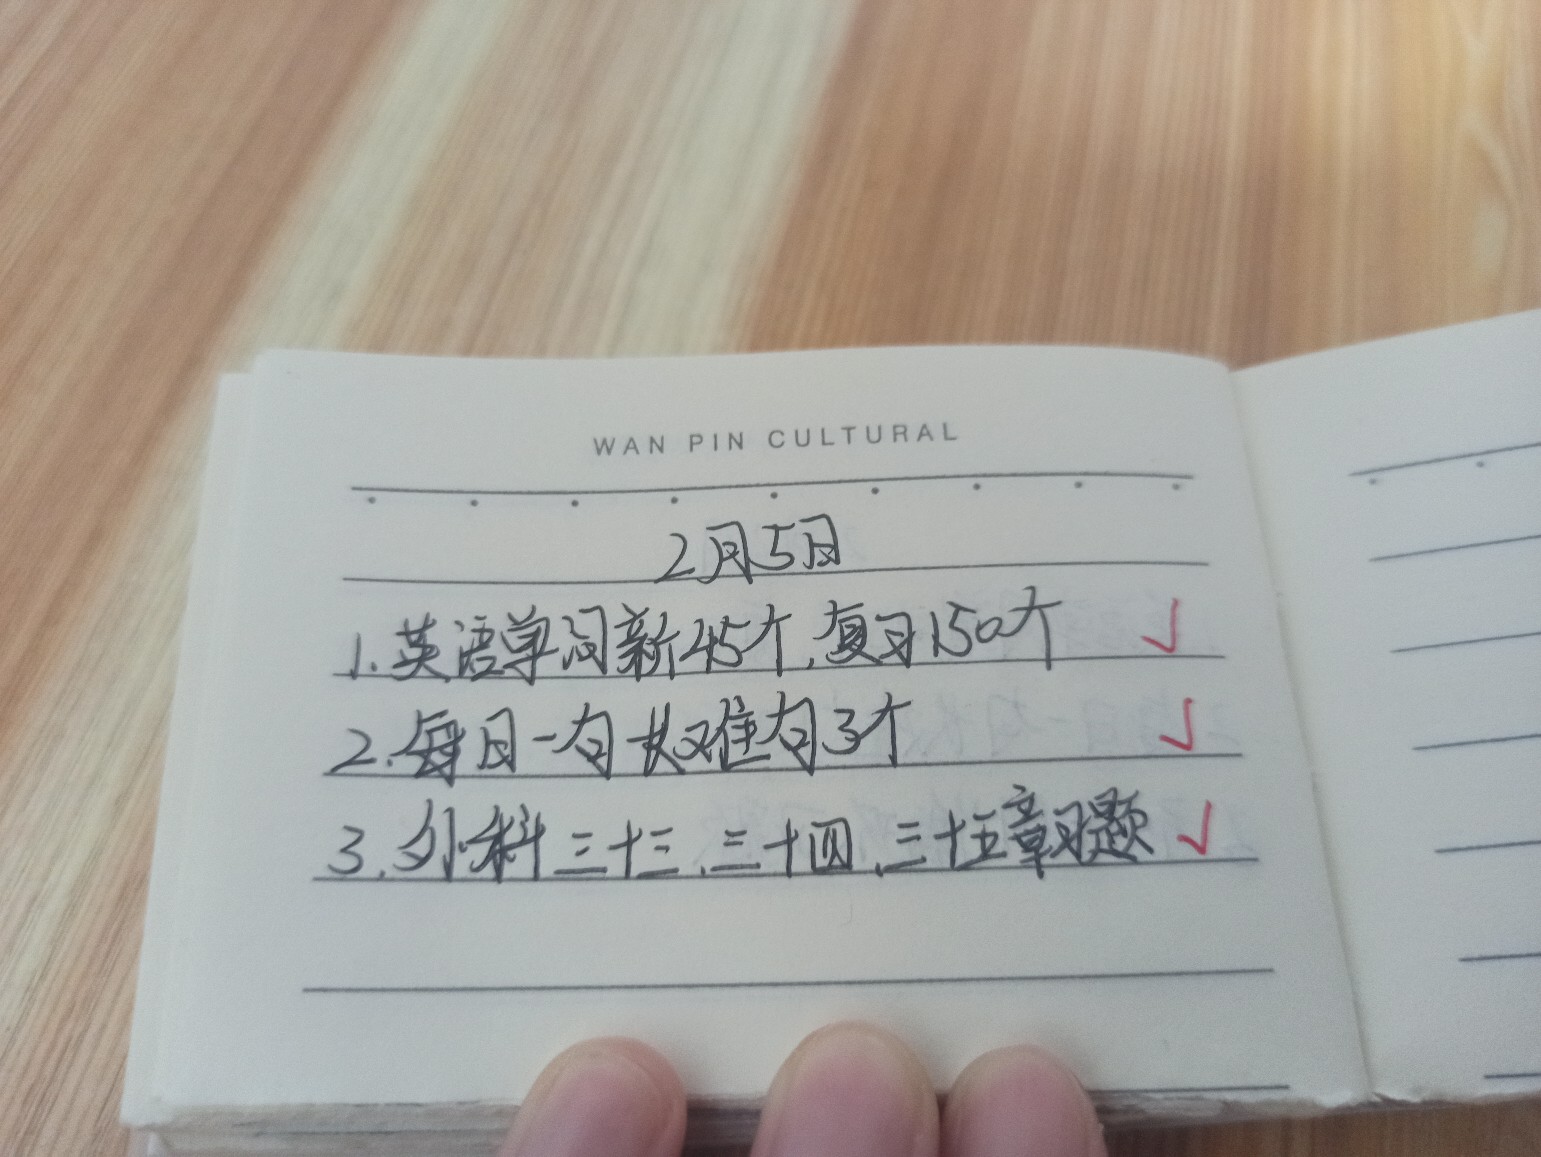 WAN PIN CULTURAL
2月5日
1.英语单词新45个,复习150个 ✓
2.每日一句长难句3个 ✓
3.外科三十三、三十四、三十五章习题 ✓